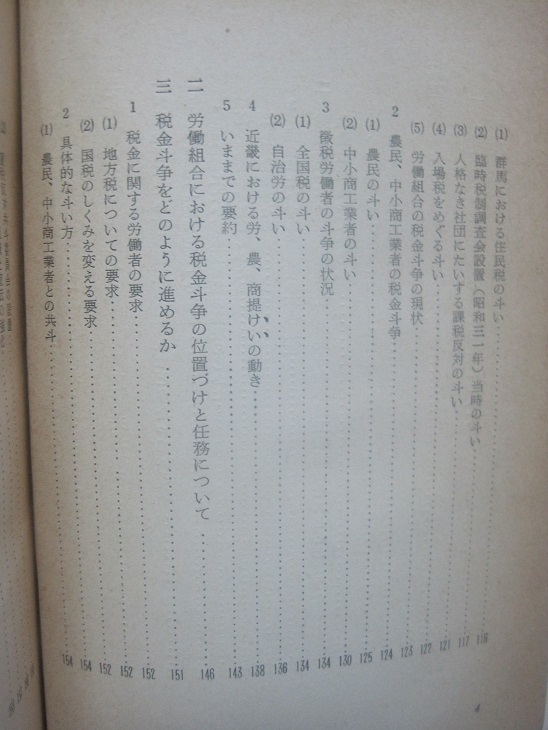 (1) 群馬における住民税の斗い……116
(2) 臨時税制調査会設置（昭和三一年）当時の斗い……117
(3) 人格なき社団にたいする課税反対の斗い……121
(4) 入場税をめぐる斗い……122
(5) 労働組合の税金斗争の現状……123
2 農民、中小商工業者の税金斗争……124
(1) 農民の斗い……125
(2) 中小商工業者の斗い……130
3 徴税労働者の斗争の状況……134
(1) 全国税の斗い……134
(2) 自治労の斗い……136
4 近畿における労、農、商提けいの動き……138
5 いままでの要約……143
二 労働組合における税金斗争の位置づけと任務について……146
三 税金斗争をどのように進めるか……151
1 税金に関する労働者の要求……152
(1) 地方税についての要求……152
(2) 国税のしくみを変える要求……154
2 具体的な斗い方……154
(1) 農民、中小商工業者との共斗
4